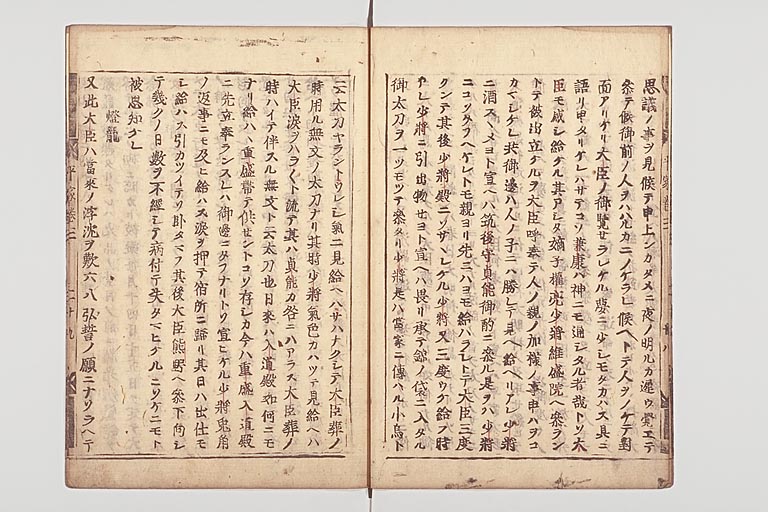 思議ノ事ヲ見候テ申上ンカタメニ夜ノ明ルカ遅ウ覺エテ
參テ候御前ノ人ヲハルカニノケラレ候ヘトテ人ヲノケテ對
面アリケリ大臣ノ御覽セラレケル夢ニ少シモタカハス具ニ
語リ申タリケレハサテコソ兼康ハ神ニモ通シタル者哉トソ大
臣モ感シ給ケル其アシタ嫡子權亮少將維盛院ヘ參ラン
トテ被出立ケルヲ大臣呼奉テ人ノ親ノ加樣ノ事申ハヲコ
カマシケレ共御邊ハ人ノ子ニハ勝レテ見ヘ給ヘリアレ少將
ニ酒スヽメヨト宣ヘハ筑後守貞能御酌ニ參ル是ヲハ少將
ニコソタフヘケレトモ親ヨリ先ニハヨモ給ハラシトテ大臣三度
クンテ其後少將殿ニソサヽレケル少將又三度ウケ給フ時
アレ少將ニ引出物セヨト宣ヘハ畏リ承テ錦ノ袋ニ入タル
御太刀ヲ一ツモツテ參タリ少將是ハ當家ニ傳ハル小烏ト
云太刀ヤラントウレシ氣ニ見給ヘハサハナクシテ大臣葬ノ
時用ル無文ノ太刀ナリ其時少將氣色カハツテ見給ヘハ
大臣淚ヲハラハラト流テ其ハ貞能カ咎ニハアラス大臣葬ノ
時ハイテ伴スル無文ト云太刀也日來ハ入道殿如何ニモ
ナリ給ハヽ重盛帶テ供セントコソ存シカ今ハ重盛入道殿
ニ先立奉ランスレハ御邊ニタフナリトソ宣ヒケル少將兎角
ノ返事ニモ及ヒ給ハス淚ヲ押テ宿所ニ歸リ其日ハ出仕モ
シ給ハス引カツイテソ臥タマフ其後大臣熊野ヘ參下向シ
テ幾クノ日數ヲ不經シテ病付テ失タマヒケルニソケニモト
被思知ケレ
燈籠
又此大臣ハ當來ノ浮沈ヲ歎六八弘誓ノ願ニナソラヘテ
平家卷三
二十九